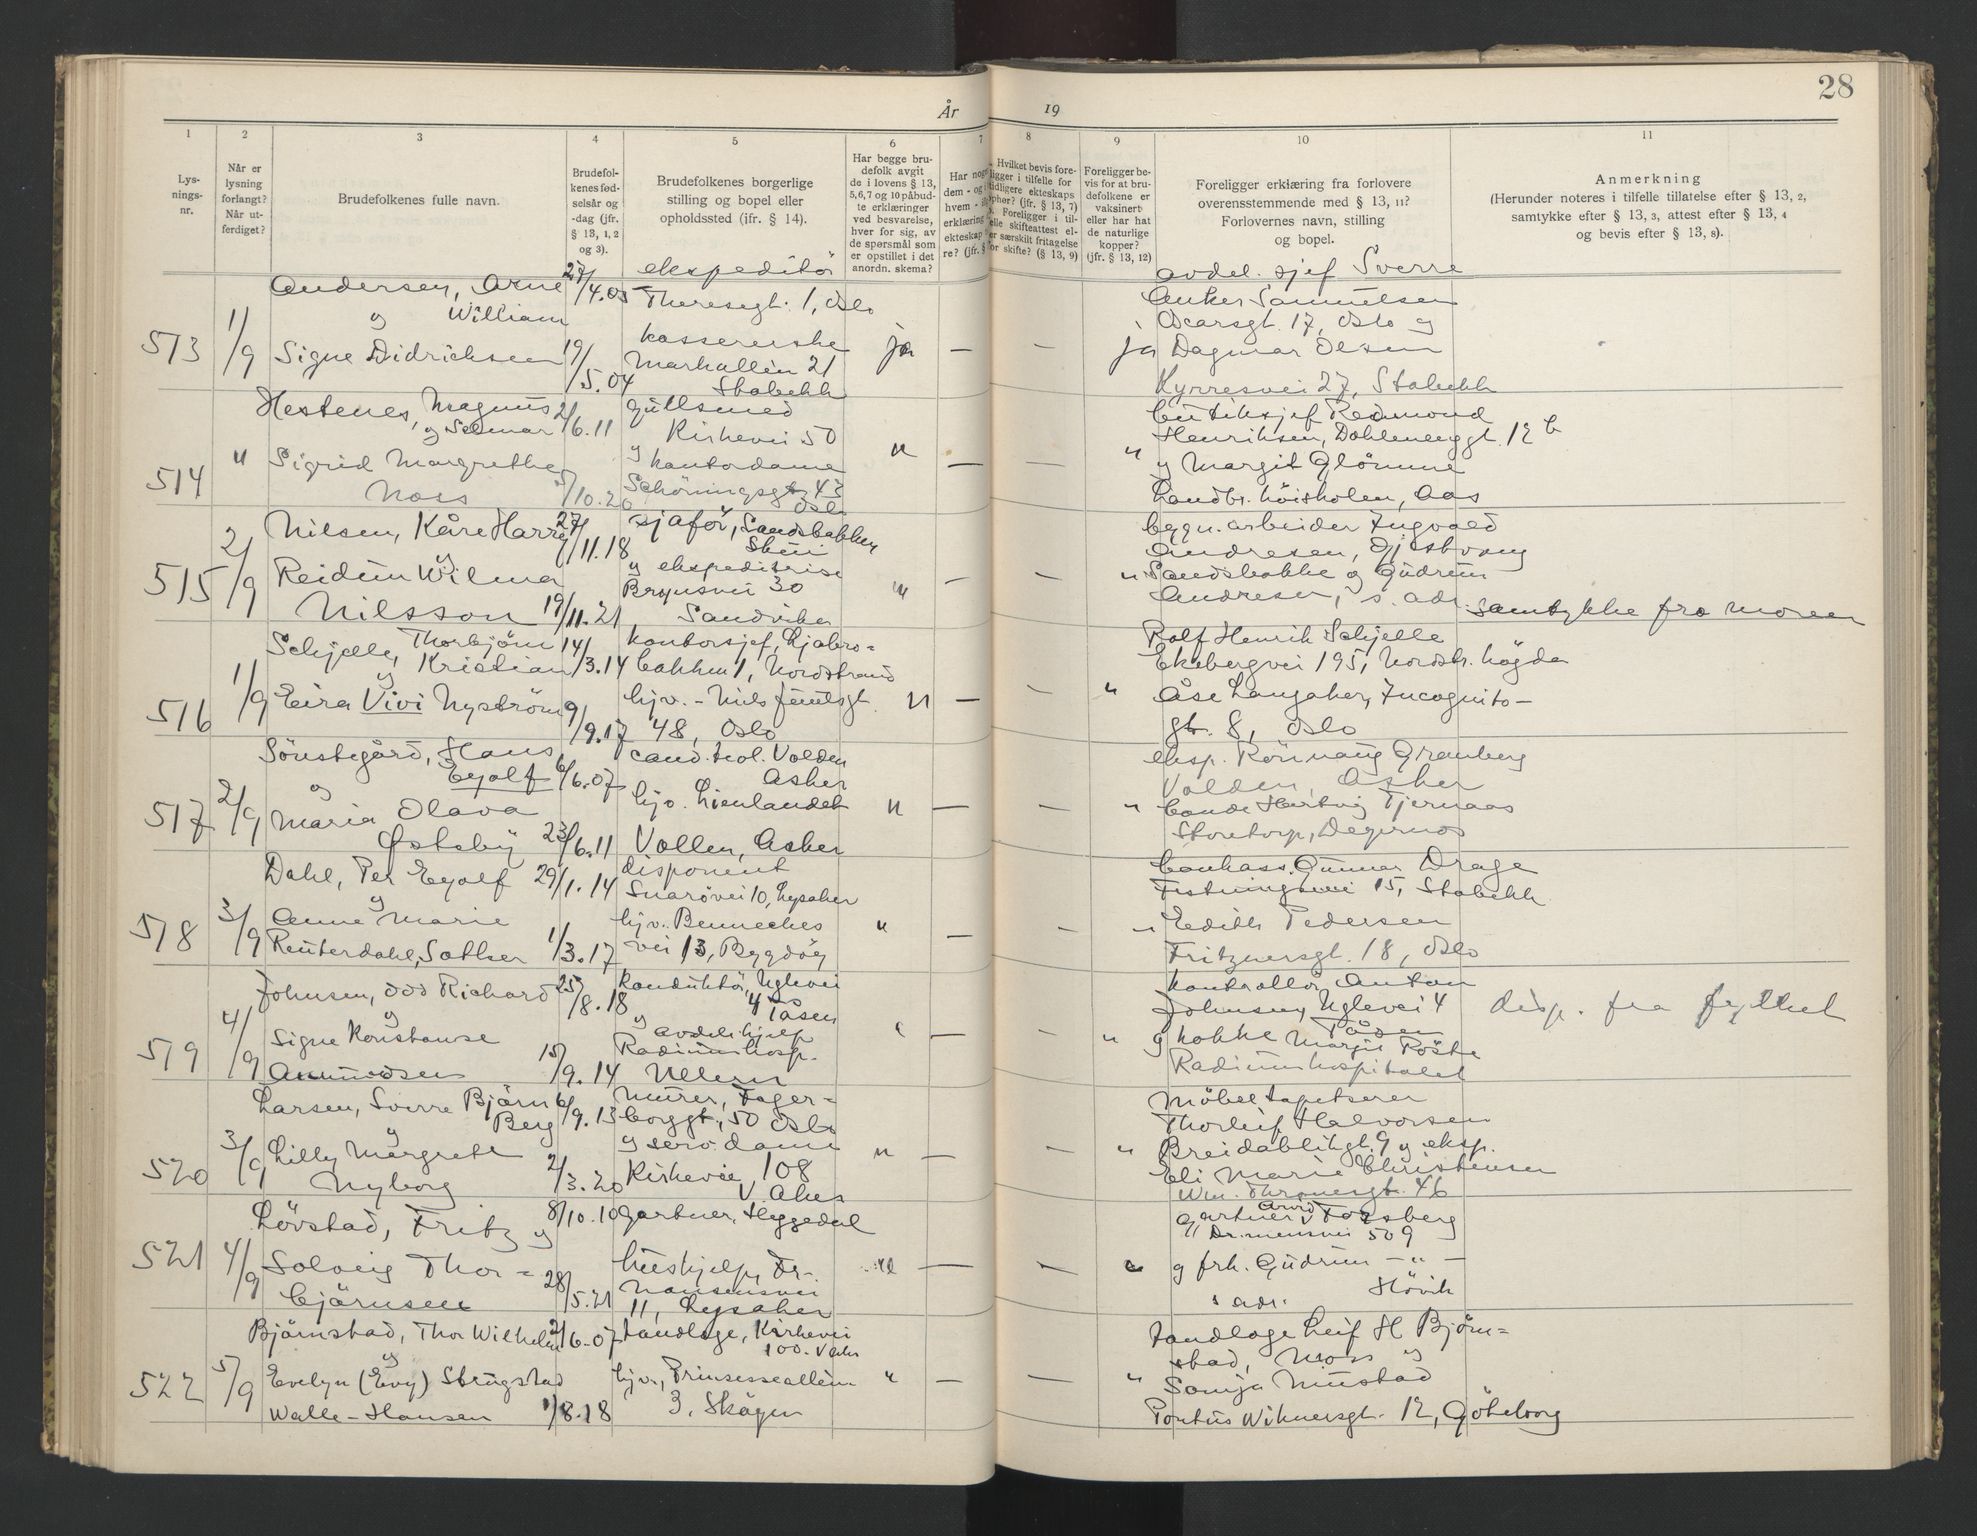 28
År
19
1
2
3
4
5
6
7
8
9
10
11
Lys-
nings-
nr.
Når er
lysning
forlangt?
Når ut-
ferdiget?
Brudefolkenes fulle navn.
Brudefol-
kenes fød-
selsår og
-dag (jfr.
§ 13, 1, 2
og 3).
Brudefolkenes borgerlige
stilling og bopel eller
opholdssted (ifr. § 14).
Har begge bru-
defolk avgit
de i lovens § 13,
5, 6, 7 og 10 påbud-
te erklæringer
ved besvarelse,
hver for sig, av
de spørsmål som
er opstillet i det
anordn. skema?
Har noge
dem - og i
hvem -
erklæring
ekteskap
re? (jfr. §
Hvilket bevis fore-
ligger i tilfelle for
tidligere ekteskaps
ophør? (jfr. § 13, 7)
Foreligger i til-
felle skifteattest el-
er særskilt fritagelse
for skifte? (§ 13, 9)
Foreligger be-
vis for at bru-
defolkene er
vaksinert
eller har hat
de naturlige
kopper?
(jfr. § 13, 12)
Foreligger erklæring fra forlovere
overensstemmende med § 13, 11?
Forlovernes navn, stilling
og bopel.
Anmerkning
(Herunder noteres i tilfelle tillatelse efter § 13, 2,
samtykke efter § 13, 3, attest efter § 13, 4
og bevis efter § 13, 8).
513
1/9
Andersen, Arne
William
og
Signe Didrichsen
27/4.03
19/5.04
ekspeditör
Theresegt. 1, Oslo
kassererske
Markallèen 21
Stabekk
ja
—
—
ja
avdel. sjef Sverre
Anker Samuelsen
Oscarsgt. 17, Oslo og
Dagmar Olsen
Kyrresvei 27, Stabekk
514
"
Hestenes, Magnus
og Selmar
Sigrid Margrethe
Noss
2/6.11
5/10.20
gullsmed
Kirkevei 50
og kontordame
Schöningsgt 43
Oslo
"
—
—
"
butiksjef Redmond
Henriksen, Dahlenenggt. 12 b
og Margit Glömme
Landbr. höiskolen, Aas
515
2/9
Nilsen, Kåre Harry
og
Reidun Wilma
Nilsson
27/11.18
19/11.21
sjafør, Sandsbakken
Skui
og ekspeditrise
Brynsvei 30
Sandvika
"
—
—
"
bygn. arbeider Ingvald
Andresen, Gjestvang
Sandsbakke og Gudrun
Andresen, s. adr.
Samtykke fra moren
516
1/9
Schjelle, Thorbjörn
Kristian
og
Eira Vivi Nyström
14/3.14
9/9.17
kontorsjef, Ljabro-
bakken 1, Nordstrand
hjv. - Niels Juelsgt.
48, Oslo
"
—
—
"
Rolf Henrik Schjelle
Ekebergvei 195, Nordstr. högda
Åse Langaker, Incognito-
gt. 8, Oslo
517
2/9
Sönstegård, Hans
Eyolf
og
Maria Olava
Østeby
6/6.07
23/6.11
cand. teol. Volden
Asker
hjv. Lienlandet
Vollen, Asker
"
—
—
"
eksp. Rönnaug Granberg
Volden, Asker
bonde Hartvig Tjernaas
Storetorp, Degernes
518
3/9
Dahl, Per Eyolf
og
Anne Marie
Reuterdahl, Sather
29/1.14
1/3.17
disponent
Snarövei 10, Lysaker
hjv. Benneches
vei 13, Bygdöy
"
—
—
"
bankass. Gunnar Drage
Festningsvei 15, Stabekk
Edith Pedersen
Fritznersgt. 18, Oslo
519
4/9
Johnsen, Odd Richard
og
Signe Konstanse
Aamundsen
25/8.18
15/9.14
konduktör, Uglevei
4 Tåsen
og avdel. hjelp
Radiumhosp.
Ullern
"
—
"
kontrollör Anton
Johnsen, Uglevei 4
Tåsen
og kokke Margit Röste
Radiumhospitalet
disp. fra fylket
520
3/9
Larsen, Sverre Björn
Berg
og
Lilly Margrete
Nyborg
6/9.13
2/3.20
murer, Fager-
borggt. 50 Oslo
og serv. dame
Kirkevei, 108
V. Aker
"
—
—
"
Möbeltapetserer
Thorleif Halvorsen
Breidablikgt. 9 og eksp.
Eli Marie Christensen
Wm. Thranesgt. 46
521
4/9
Lövstad, Fritz
og
Solveig Thor-
björnsen
8/10.10
28/5.21
Gartner, Heggedal
hushjelp, Fr.
Nansensvei
11, Lysaker
"
—
—
"
gartner Arvid Forsberg
Dr.mensvei 509
og frk. Gudrun — " —
s adr. Hövik
522
5/9
Björnstad, Thor Wilhelm
og
Evelyn (Evy) Strugstad
Walle-Hansen
2/6.07
1/8.18
tandlege, Kirkevei
100. V. Aker
hjv., Prinsessealléen
3, Skögen
"
—
—
"
tandlege Leif H Björn-
stad, Moss og
Sonja Mustad
Pontus Wiknersgt. 12, Göteborg